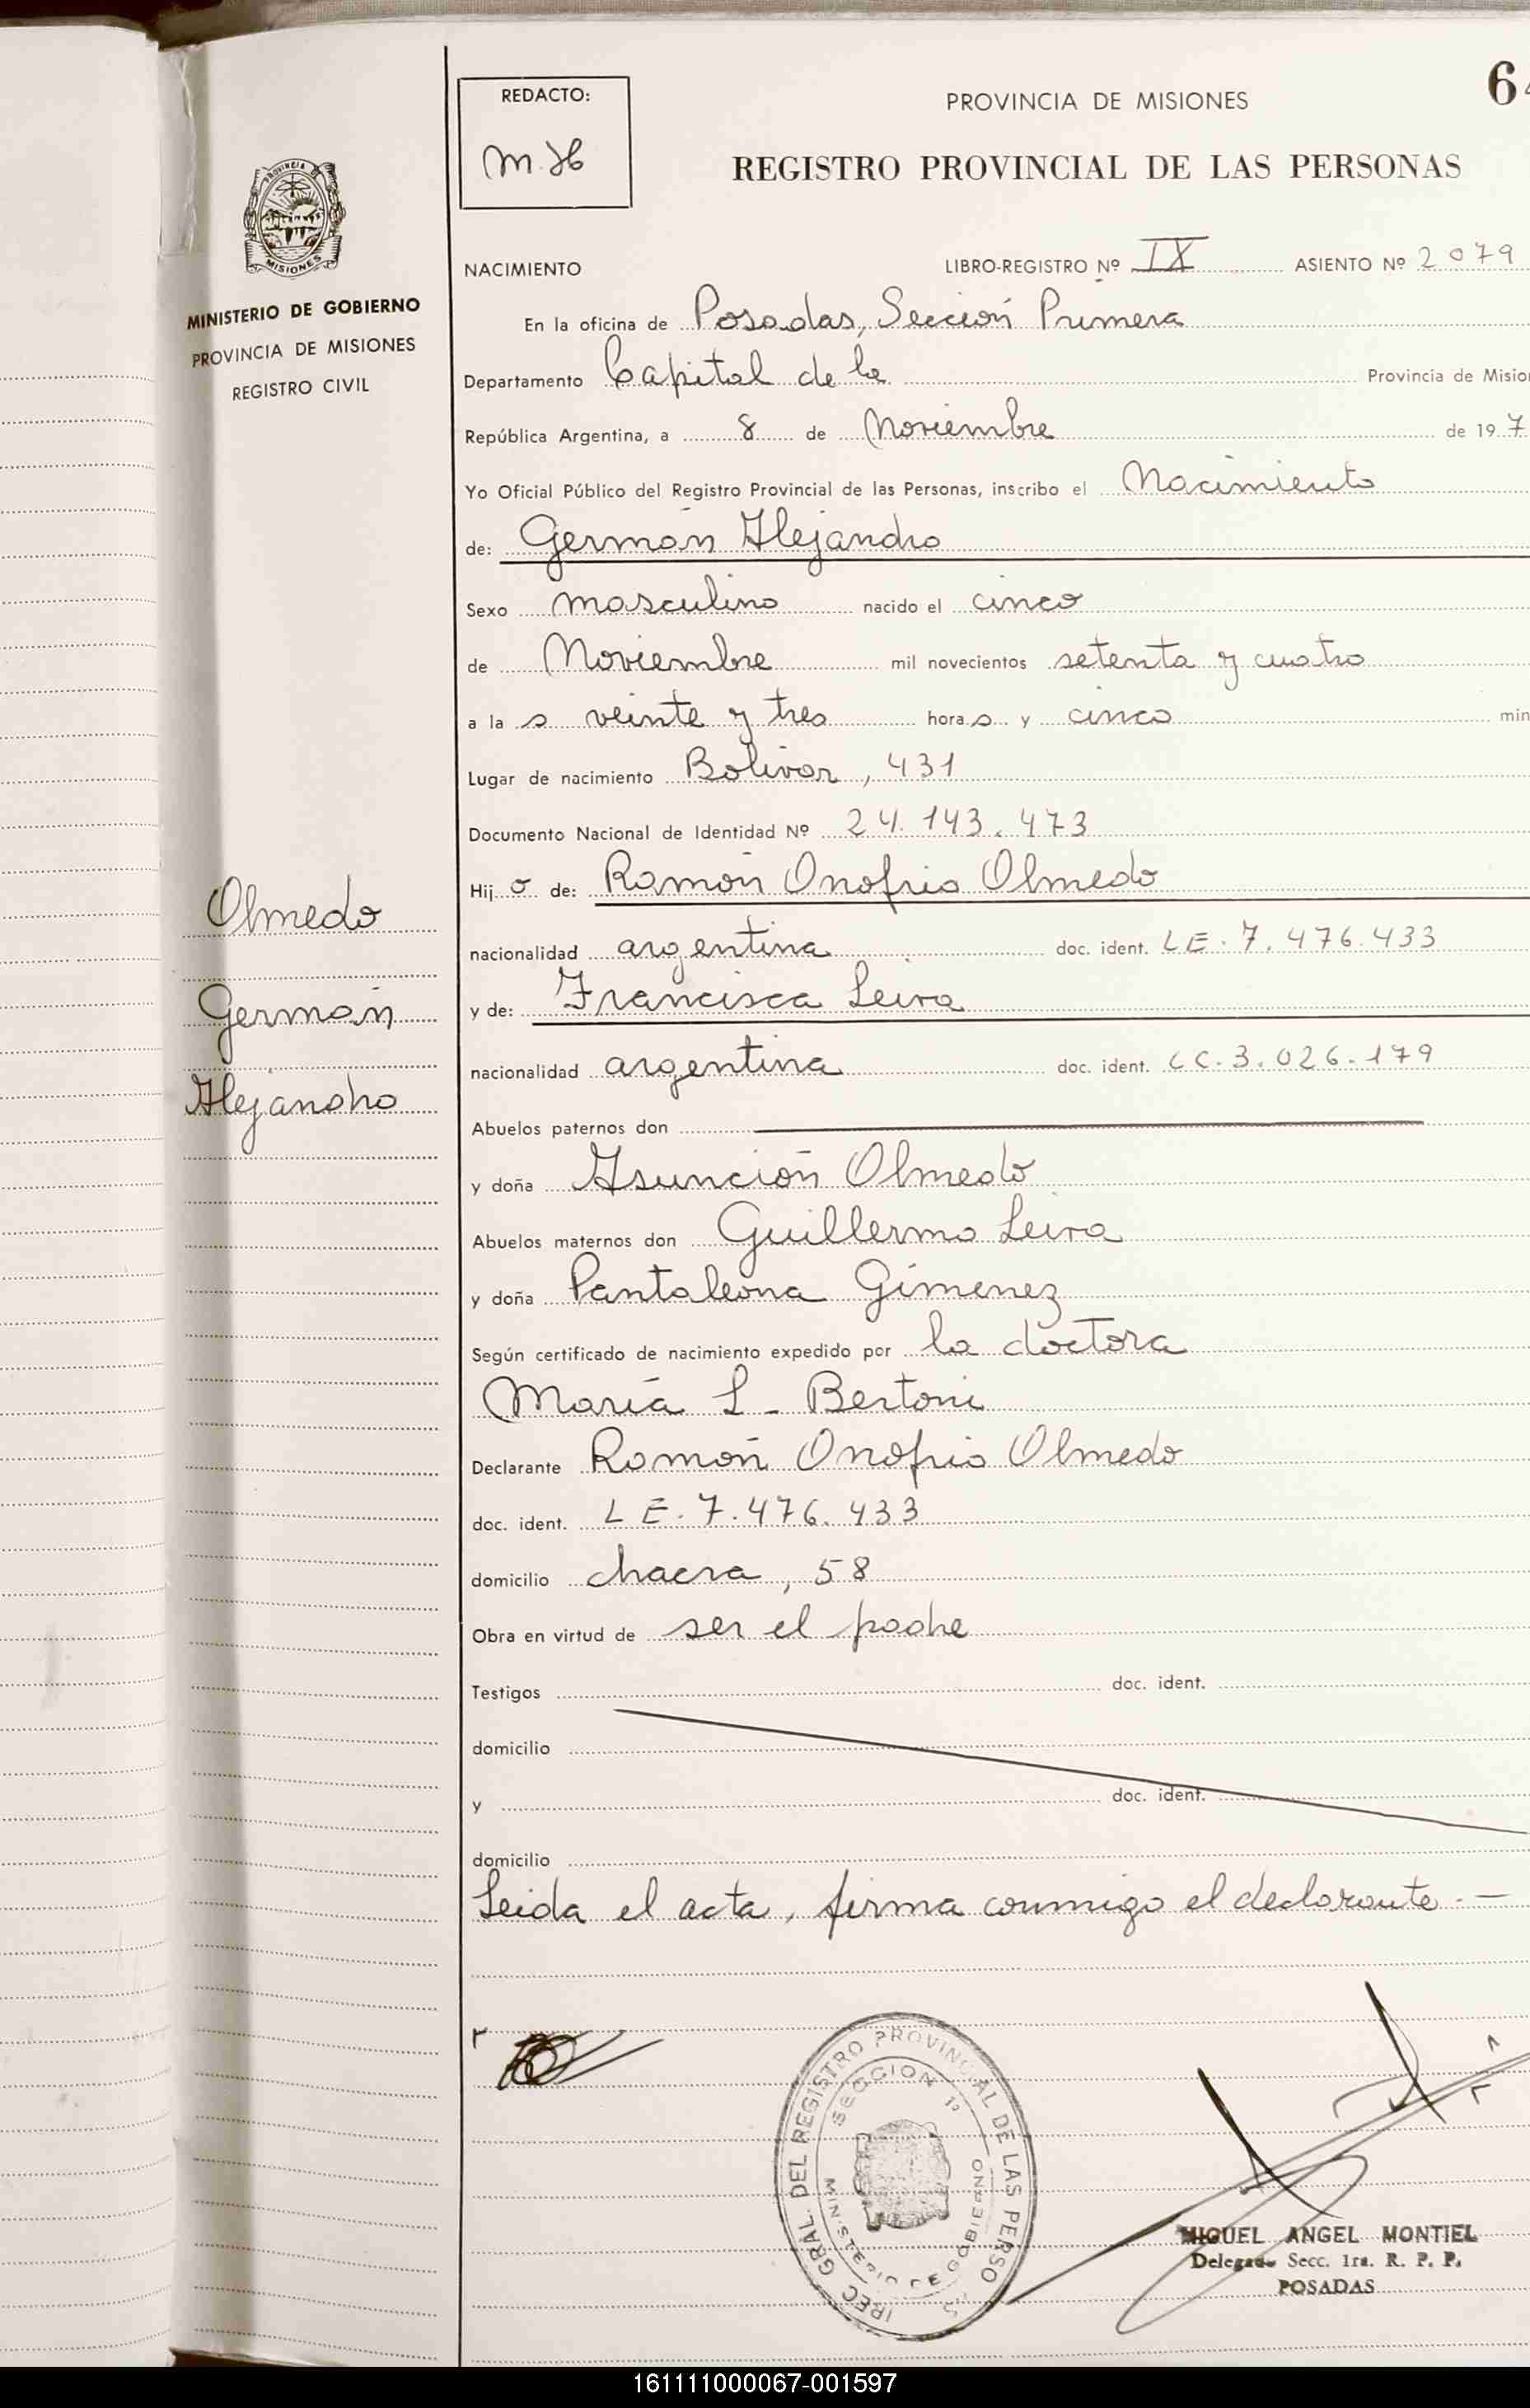 REDACTO:
PROVINCIA DE MISIONES
6
REGISTRO PROVINCIAL DE LAS PERSONAS
PROVINCIA DE
MISIONES
MINISTERIO DE GOBIERNO
PROVINCIA DE MISIONES
REGISTRO CIVIL
NACIMIENTO LIBRO-REGISTRO Nº IX ASIENTO Nº 2079
En la oficina de Posadas, Sección Primera
Departamento Capital de la Provincia de Misio
República Argentina, a 8 de Noviembre de 197
Yo Oficial Público del Registro Provincial de las Personas, inscribo el Nacimiento
de: Germán Alejandro
Sexo masculino nacido el cinco
de Noviembre mil novecientos setenta y cuatro
a la s veinte y tres hora s y cinco min
Lugar de nacimiento Bolivar, 431
Documento Nacional de Identidad Nº 24.143.473
Hij o de: Ramón Onofrio Olmedo
nacionalidad argentina doc. ident. LE. 7.476.433
y de: Francisca Leiva
nacionalidad argentina doc. ident. LC. 3.026.179
Abuelos paternos don
y doña Asunción Olmedo
Abuelos maternos don Guillermo Leiva
y doña Pantaleona Gimenez
Según certificado de nacimiento expedido por la doctora
María L. Bertoni
Declarante Ramón Onofrio Olmedo
doc. ident. LE. 7.476.433
domicilio chacra, 58
Obra en virtud de ser el padre
Testigos doc. ident.
domicilio
y doc. ident.
domicilio
Leida el acta, firma conmigo el declarante.-
Olmedo
Germán
Alejandro
DIREC. GRAL. DEL REGISTRO PROVINCIAL DE LAS PERSO S
SECCION 1ª
MINISTERIO DE GOBIERNO
MIGUEL ANGEL MONTIEL
Delegado Secc. 1ra. R. P. P.
POSADAS
161111000067-001597